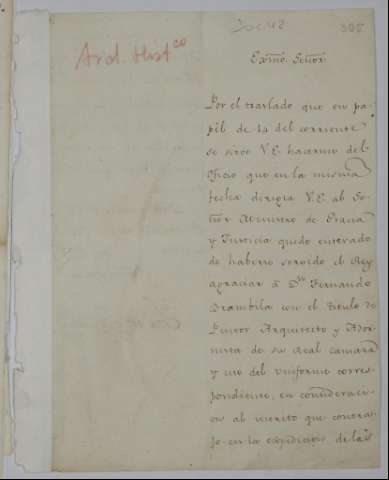 Doc 42
395
Arch. Histco
Exmo. Señor.
Por el traslado que en pa-
pel de 14 del corriente
se sirve V.E. hacerme del
Oficio que en la misma
fecha dirigia V.E. al Se-
ñor Ministro de Gracia
y Justicia quedo enterado
de haberse servido el Rey
agraciar á Dn. Fernando
Brambila con el titulo de
Pintor Arquitecto y Ador-
nista de su Real camara
y uso del Uniforme corres-
pondiente, en consideraci-
on al merito que contra-
jo en la expedicion de las